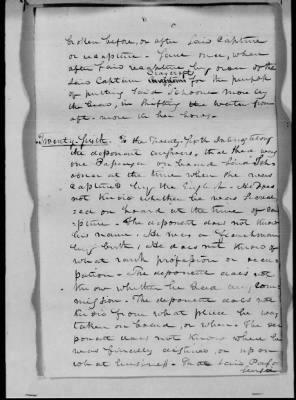 broken before, or after said Capture
or recapture - Save once, when
after said recapture by order of the
said Captain for the purpose
of putting said Schooner more by
the head, in shifting the water from
aft. more the her bows.
Twenty-Sixth. To the Twenty Sixth Interrogatory
the deponent answers, that there was
one Passenger on board said Scho
oner at the time when she was
captured by the English. He Does
not know whether he was
on board at the time of ca
pture. The deponent does not know
his name, he was a Frenchman
by birth, He does not know of
what rank profession or occu
pation. - The deponent does not
know whether he had any com
mission. The deponent does not
know from what place he was
taken on board, or when. The de
ponent does not know where he
was finally destined, or upon
what business. That said Pas
senger